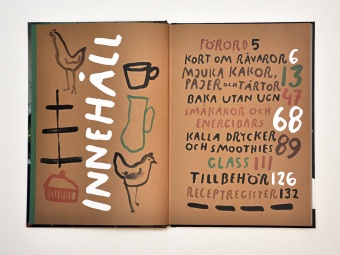 INNEHÅLL
FÖRORD 5
KORT OM RÅVAROR 6
MJUKA KAKOR, 13
PAJER OCH TÅRTOR
BAKA UTAN UGN 47
SMÅKAKOR OCH 68
ENERGIBARS
KALLA DRYCKER 89
OCH SMOOTHIES
GLASS 111
TILLBEHÖR 126
RECEPTREGISTER 132